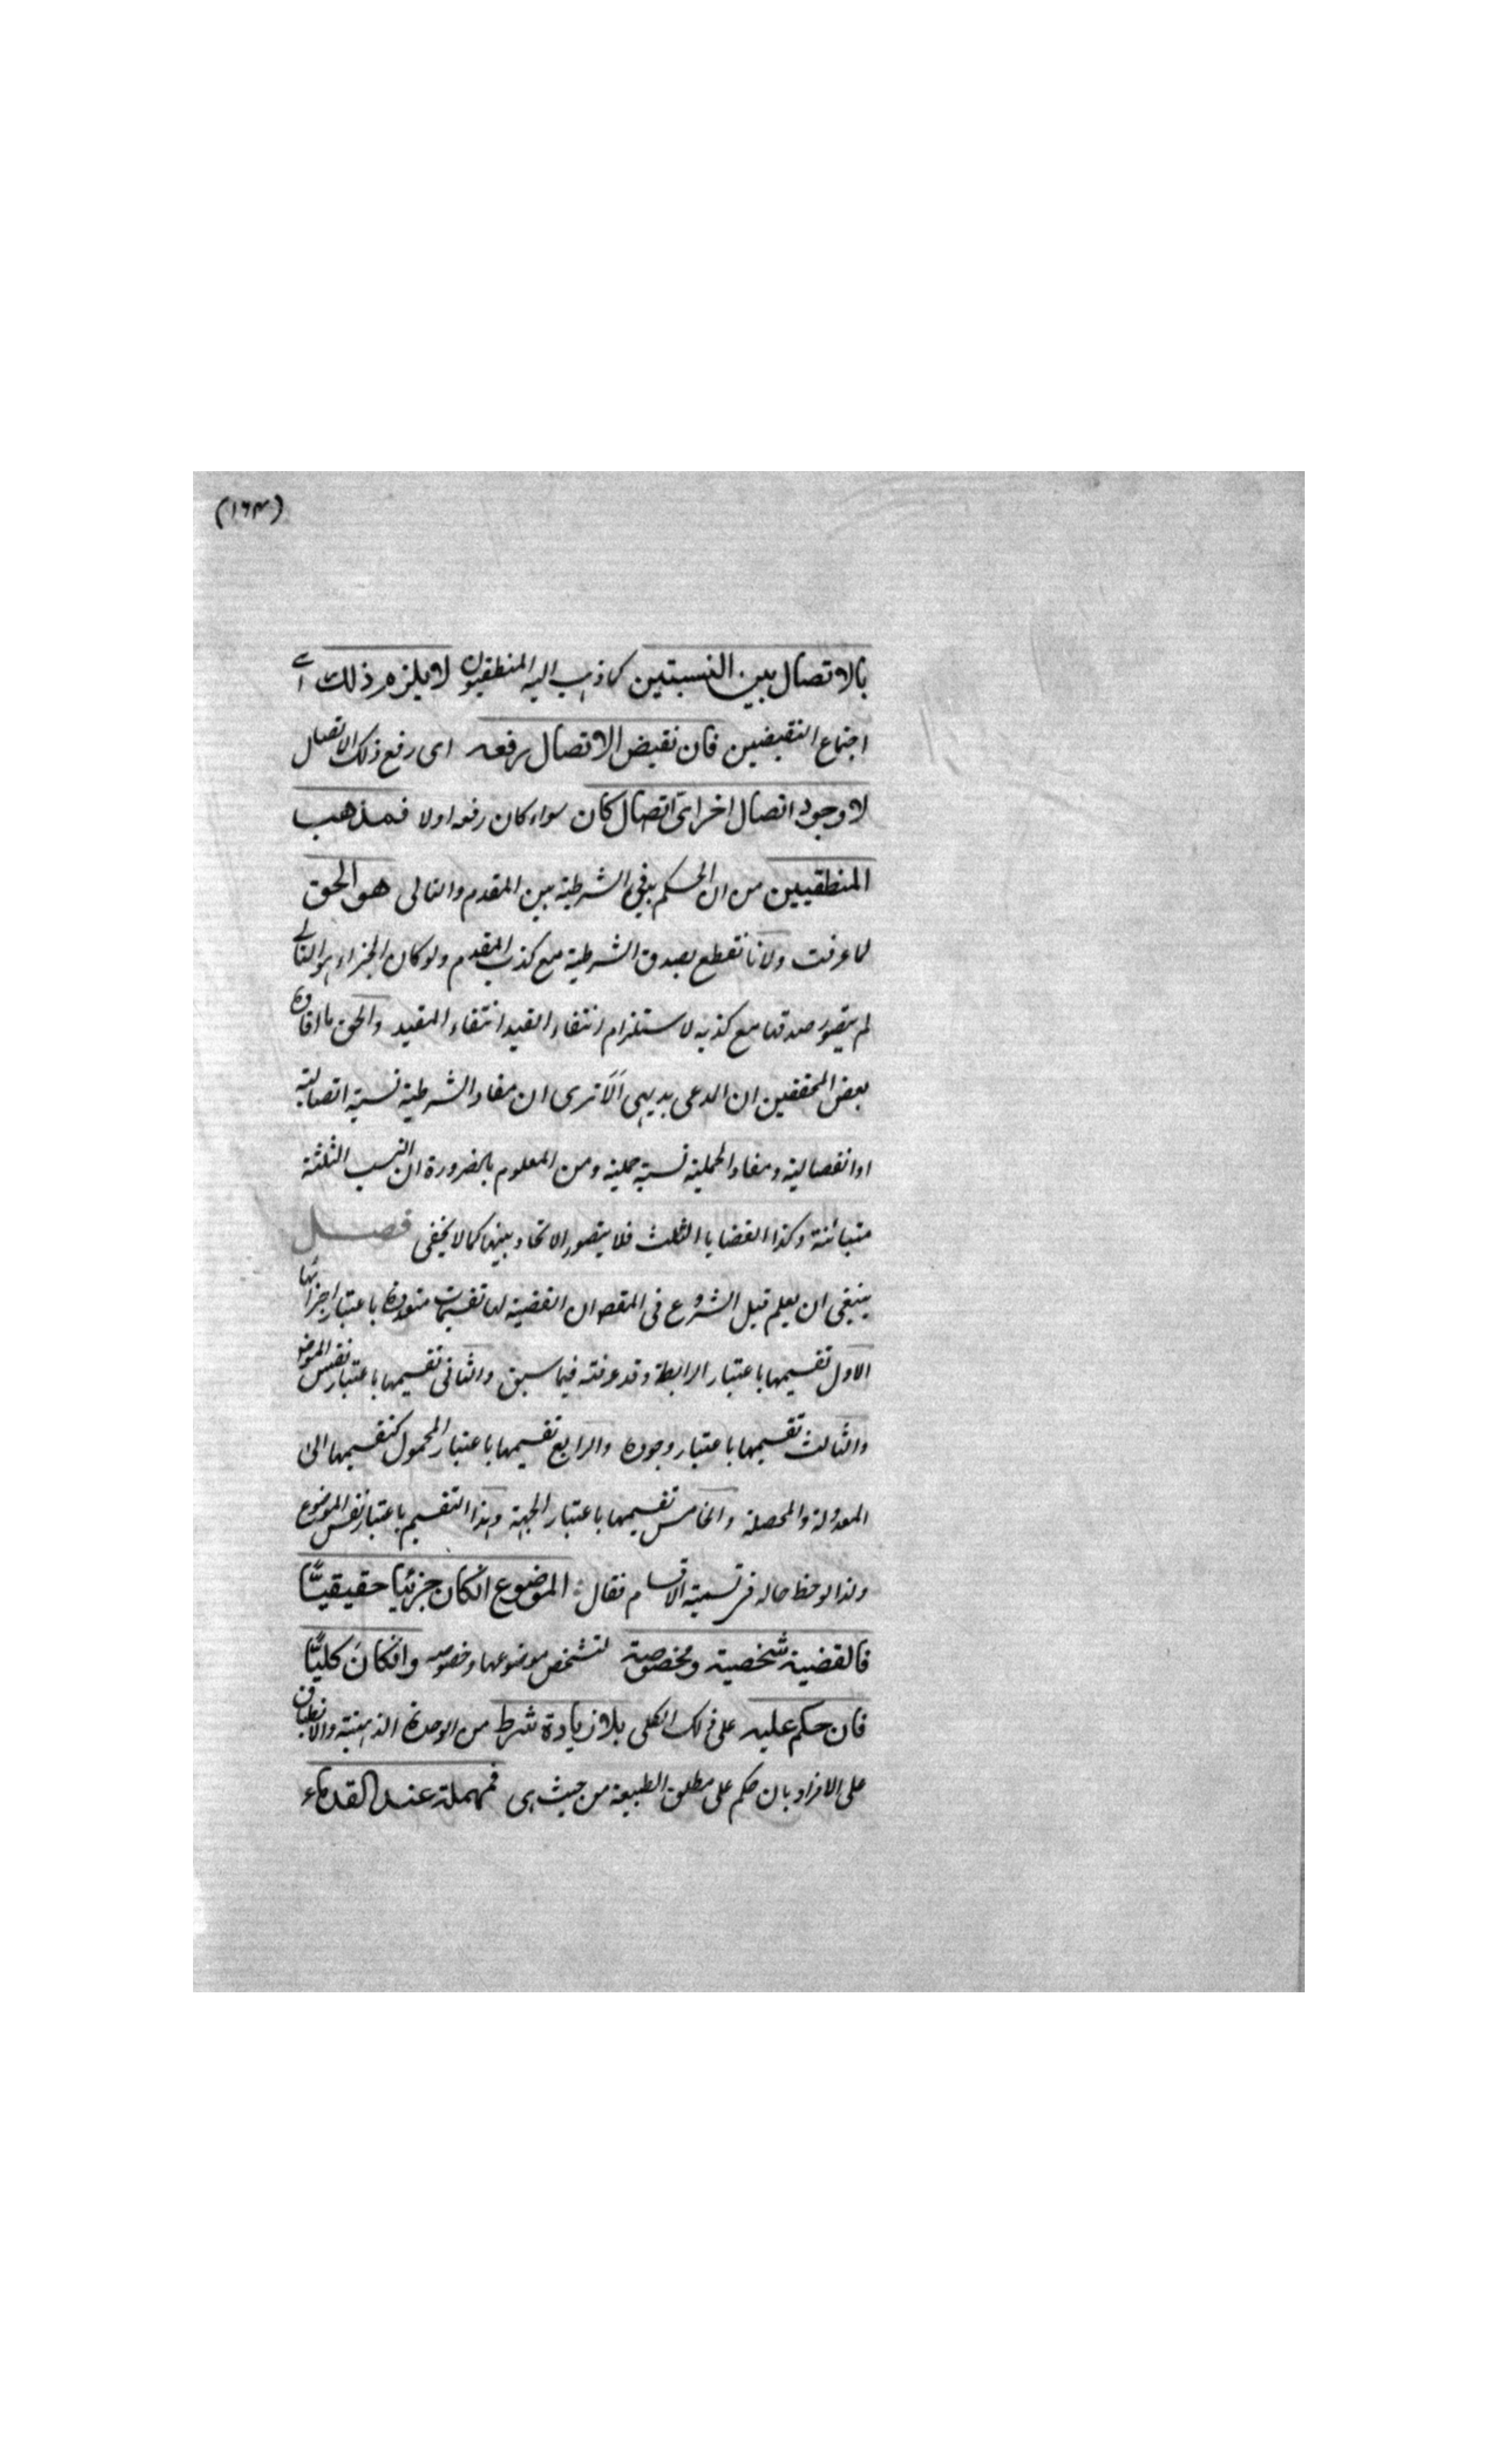 (١٦٣)
بالاتصال بين النسبتين كما ذهب اليه المنطقيون لا يلزم ذلك اے
اجتماع النقيضين فان نقيض الاتصال رفعه اى رفع ذلك الاتصال
لا وجود اتصال اخر اىّ اتصال كان سواء كان رفعه اولا فمذهب
المنطقيين من ان الحكم فى الشرطية بين المقدم والتالى هو الحق
لما عرفت ولانا نقطع بصدق الشرطية مع كذب المقدم ولو كان الجزاء هو التالے
لم يتصور صدقها مع كذبه لاستلزام انتفاء القيد انتفاء المقيد والحق ما افاده
بعض المحققين ان المدعى بديهى الا ترى ان مفاد الشرطية نسبة اتصالية
او انفصالية ومفاد الحملية نسبة حملية ومن المعلوم بالضرورة ان النسب الثلثة
متبائنة وكذا القضايا الثلث فلا يتصور الاتحاد بينها كما لا يخفى فصل
ينبغى ان يعلم قبل الشروع فى المقصد ان القضية لها تقسيمات متعددة باعتبار اجزائها
الاول تقسيمها باعتبار الرابطة وقد عرفته فيما سبق والثانى تقسيمها باعتبار نفس الموضوع
والثالث تقسيمها باعتبار وجوده والرابع تقسيمها باعتبار المحمول كتقسيمها الى
المعدولة والمحصلة والخامس تقسيمها باعتبار الجهة وهذا التقسيم باعتبار نفس الموضوع
ولذا لوحظ حاله فى تسمية الاقسام فقال الموضوع انكان جزئيا حقيقيًّا
فالقضية شخصية ومخصوصة لتشخص موضوعها وخصوصه وانكان كليًّا
فان حكم عليه على ذلك الكلى بلا زيادة شرط من الوحدة الذهنية والانطباق
على الافراد بان حكم على مطلق الطبيعة من حيث هى فمهملة عند القدماء